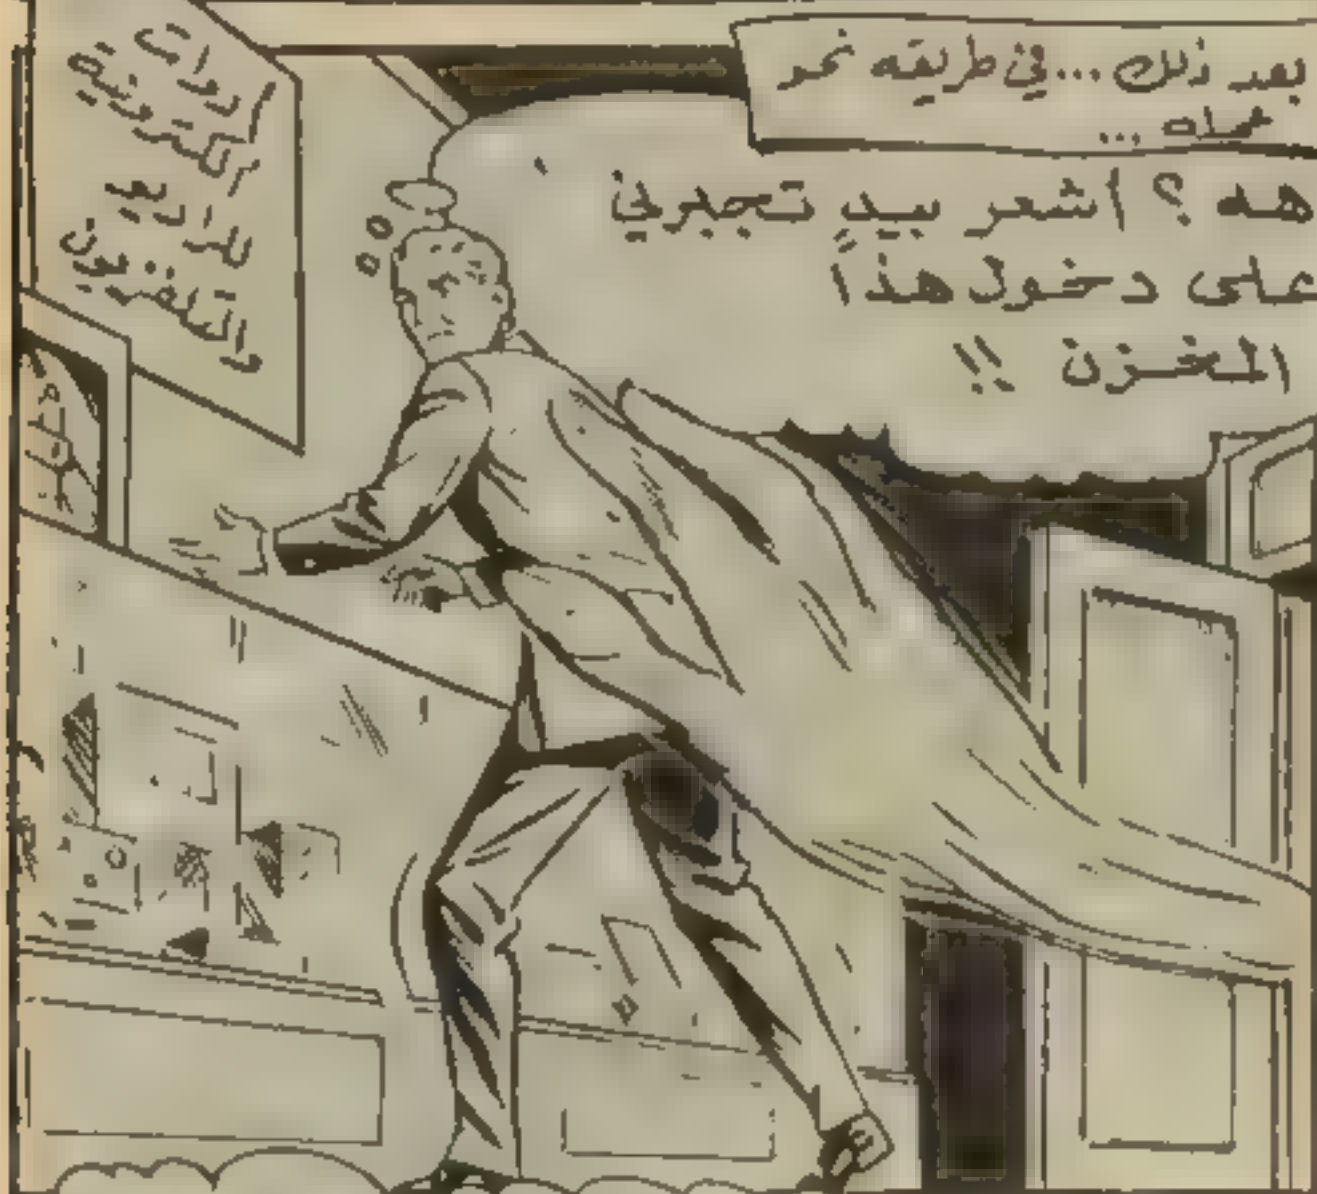 بعد ذلك ... في طريقه نحو
عمله ...
هه ؟ أشعر بيدٍ تجبرني
على دخول هذا
المخزن !!
أدوات
الكترونية
للراديو
والتلفزيون